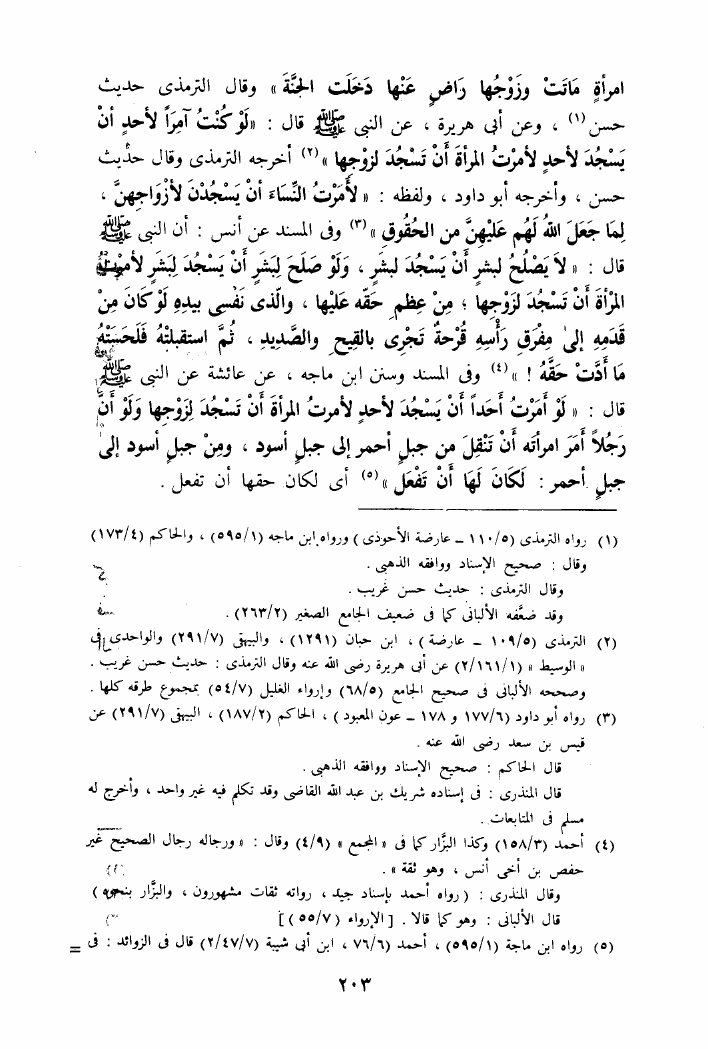 امرأةٍ مَاتَتْ وزَوْجُها رَاضٍ عَنْها دَخَلَت الجنَّةَ » وقال الترمذى حديث
حسن (١) ، وعن أبى هريرة ، عن النبى ﷺ قال : «لَوْ كُنْتُ آمِرَاً لأحدٍ أنْ
يَسْجُدَ لأحدٍ لأمرْتُ المرأةَ أَنْ تَسْجُدَ لزوجها »(٢) أخرجه الترمذى وقال حديث
حسن ، وأخرجه أبو داود ، ولفظه : « لأَمَرْتُ النِّسَاءَ أنْ يَسْجُدْنَ لأزْوَاجِهنَّ ،
لِمَا جَعَلَ اللهُ لَهُم عَلَيْهِنَّ من الحُقُوقِ »(٣) وفى المسند عن أنس : أن النبى ﷺ
قال : « لاَ يَصْلُحُ لبشرٍ أَنْ يَسْجُدَ لبشرٍ ، ولَوْ صَلَحَ لِبَشَرٍ أَنْ يَسْجُدَ لِبَشَرٍ لأمرتُ
المرْأةَ أَنْ تَسْجُدَ لزَوْجِها ؛ مِنْ عِظمِ حَقّه عَلَيْها ، والَّذى نَفْسى بيدِهِ لَوْ كَانَ مِنْ
قَدَمِهِ إلى مَفْرَقِ رَأْسِهِ قُرْحَةٌ تَجْرِى بالقَيحِ والصَّديدِ ، ثُمَّ استقبلتْهُ فَلَحَسَتْهُ
مَا أَدَّتْ حَقَّهُ ! »(٤) وفى المسند وسنن ابن ماجه ، عن عائشة عن النبى ﷺ
قال : « لَوْ أَمَرْتُ أحَداً أَنْ يَسْجُدَ لأحدٍ لأمرتُ المرأةَ أنْ تَسْجُدَ لِزَوجِها ولَوْ أَنَّ
رَجُلاً أَمَرَ امرأتَه أَنْ تَنْقِلَ من جبلٍ أحمر إلى جبلٍ أسود ، ومِنْ جبلٍ أسود إلى
جبلٍ أحمر : لَكَانَ لَهَا أَنْ تَفْعَلَ »(٥) أى لكان حقها أن تفعل .
(١) رواه الترمذى (١١٠/٥ ــ عارضة الأحوذى) ورواه ابن ماجه (٥٩٥/١) ، والحاكم (١٧٣/٤)
وقال : صحيح الإسناد ووافقه الذهبى .
وقال الترمذى : حديث حسن غريب .
وقد ضعَّفه الألبانى كما فى ضعيف الجامع الصغير (٢٦٣/٢) .
(٢) الترمذى (١٠٩/٥ ــ عارضة) ، ابن حبان (١٢٩١) ، والبيهقى (٢٩١/٧) والواحدى فى
« الوسيط » (٢/١٦١/١) عن أبى هريرة رضى الله عنه وقال الترمذى : حديث حسن غريب .
وصححه الألبانى فى صحيح الجامع (٦٨/٥) وإرواء الغليل (٥٤/٧) بمجموع طرقه كلها .
(٣) رواه أبو داود (١٧٧/٦ و ١٧٨ ــ عون المعبود) ، الحاكم (١٨٧/٢) ، البيهقى (٢٩١/٧) عن
قيس بن سعد رضى الله عنه .
قال الحاكم : صحيح الإسناد ووافقه الذهبى .
قال المنذرى : فى إسناده شريك بن عبد الله القاضى وقد تكلم فيه غير واحد ، وأخرج له
مسلم فى المتابعات .
(٤) أحمد (١٥٨/٣) وكذا البزَّار كما فى « المجمع » (٤/٩) وقال : « ورجاله رجال الصحيح غير
حفص بن أخى أنس ، وهو ثقة » .
وقال المنذرى : (رواه أحمد بإسناد جيد ، رواته ثقات مشهورون ، والبزَّار بنحوه)
قال الألبانى : وهو كما قالا . [الإرواء (٥٥/٧)]
(٥) رواه ابن ماجة (٥٩٥/١) ، أحمد (٧٦/٦) ، ابن أبى شيبة (٢/٤٧/٧) قال فى الزوائد : فى =
٢٠٣